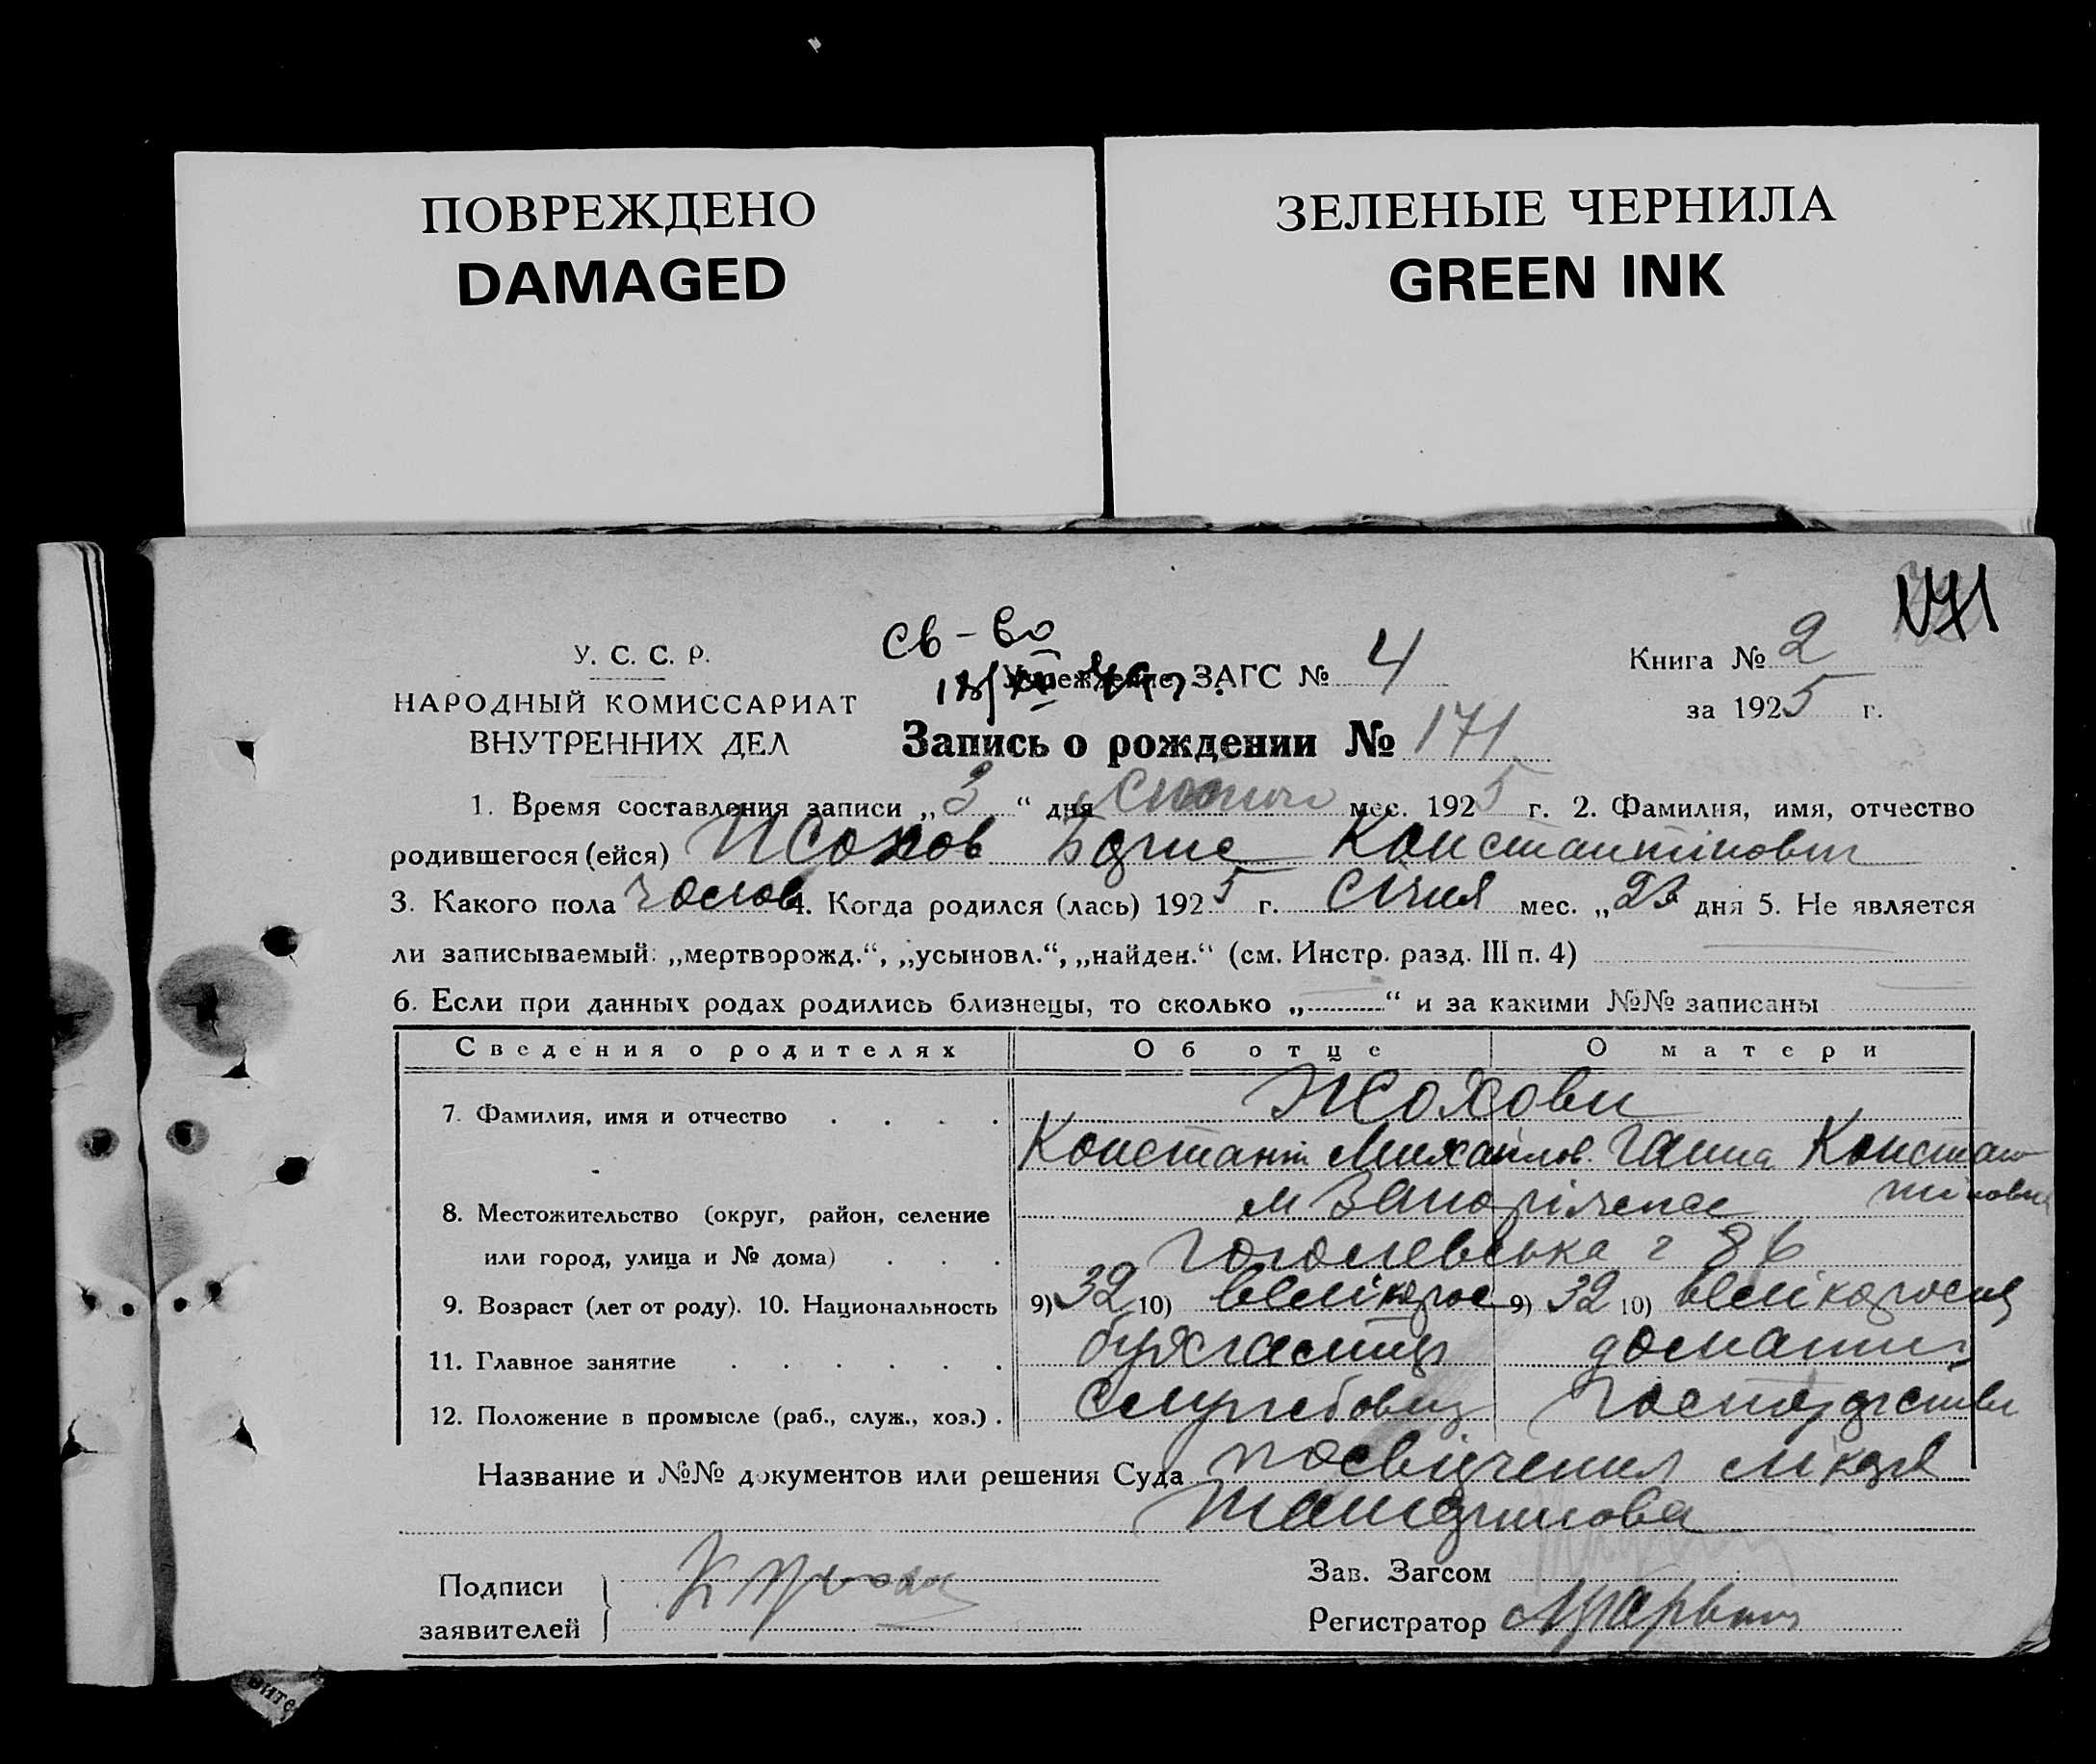 ПОВРЕЖДЕНО
DAMAGED
ЗЕЛЕНЫЕ ЧЕРНИЛА
GREEN INK
171
У. С. С. Р.
НАРОДНЫЙ КОМИССАРИАТ
ВНУТРЕННИХ ДЕЛ
св-во
Учреждение ЗАГС № 4
Книга № 2
за 1925 г.
Запись о рождении № 171
1. Время составления записи „3“ дня мес. 1925 г. 2. Фамилия, имя, отчество
родившегося (ейся) Жохов Борис Константінович
3. Какого пола чолов 4. Когда родился (лась) 1925 г. Січня мес. „23 дня 5. Не является
ли записываемый: „мертворожд.“, „усыновл.“, „найден.“ (см. Инстр. разд. III п. 4)
6. Если при данных родах родились близнецы, то сколько „ “ и за какими №№ записаны
Сведения о родителях Об отце О матери
7. Фамилия, имя и отчество Жохови
Константін Михайлов. Ганна Констан
тіновна
8. Местожительство (округ, район, селение м Запоріжжя
или город, улица и № дома) Гоголевська 86
9. Возраст (лет от роду). 10. Национальность 9) 32 10) великорос 9) 32 10) велікоросія
11. Главное занятие бухгалтер домашнє
12. Положение в промысле (раб., служ., хоз.) службовец господарство
Название и №№ документов или решения Суда посвідчення лікаря
Подписи
заявителей
Зав. Загсом
Регистратор
вите